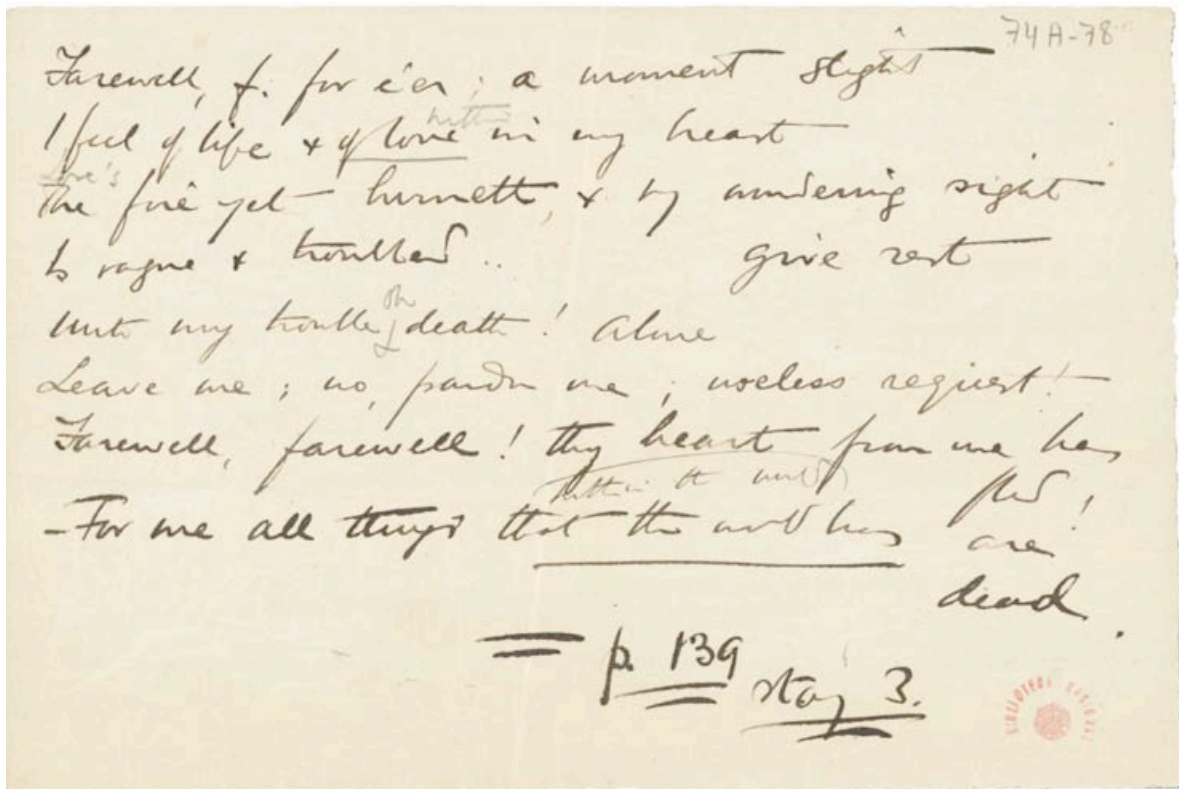 74A-78
Farewell, f. for e'er; a moment slight
I feel of life & of love in my heart
within
Love's
The fire yet burneth, & my wandering sight
Is vague & troubled.. give rest
oh
Unto my trouble, death! Alone
Leave me; no, pardon me; useless request!
Farewell, farewell! thy heart from me has
fled!
within the world
- For me all things that the world has
are
dead.
p. 139
stay 3.
BIBLIOTECA NACIONAL